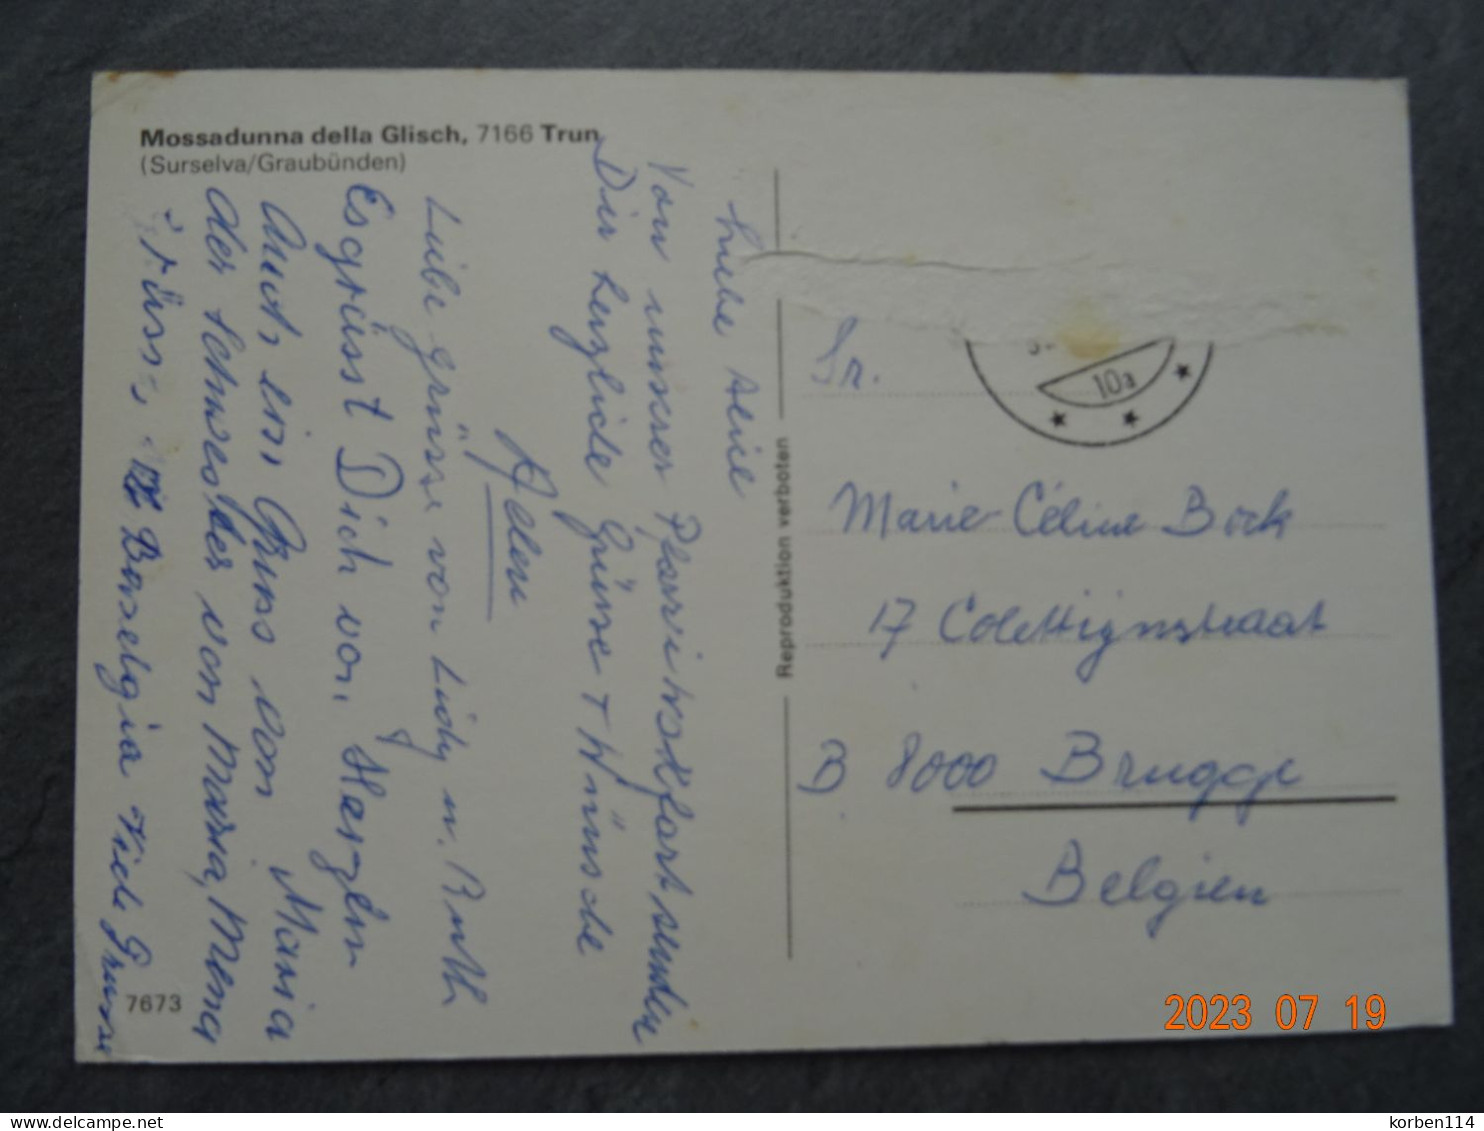 Mossadunna della Glisch, 7166 Trun
(Surselva/Graubünden)
Liebe Aline
Von unserer Pfarreiwallfahrt senden
Dir herzliche Grüsse + Wünsche
Liebe Grüsse von Lidy u. Ruth
Es grüsst Dich von Herzen
Auch ein Gruss von Maria
der Schwester von Maria, Mena
Baselgia Viele Grüsse
7673
Reproduktion verboten
10a
Sr.
Marie-Céline Bock
17 Colettijnstraat
B 8000 Brugge
Belgien
2023 07 19
delcampe.net
korben114